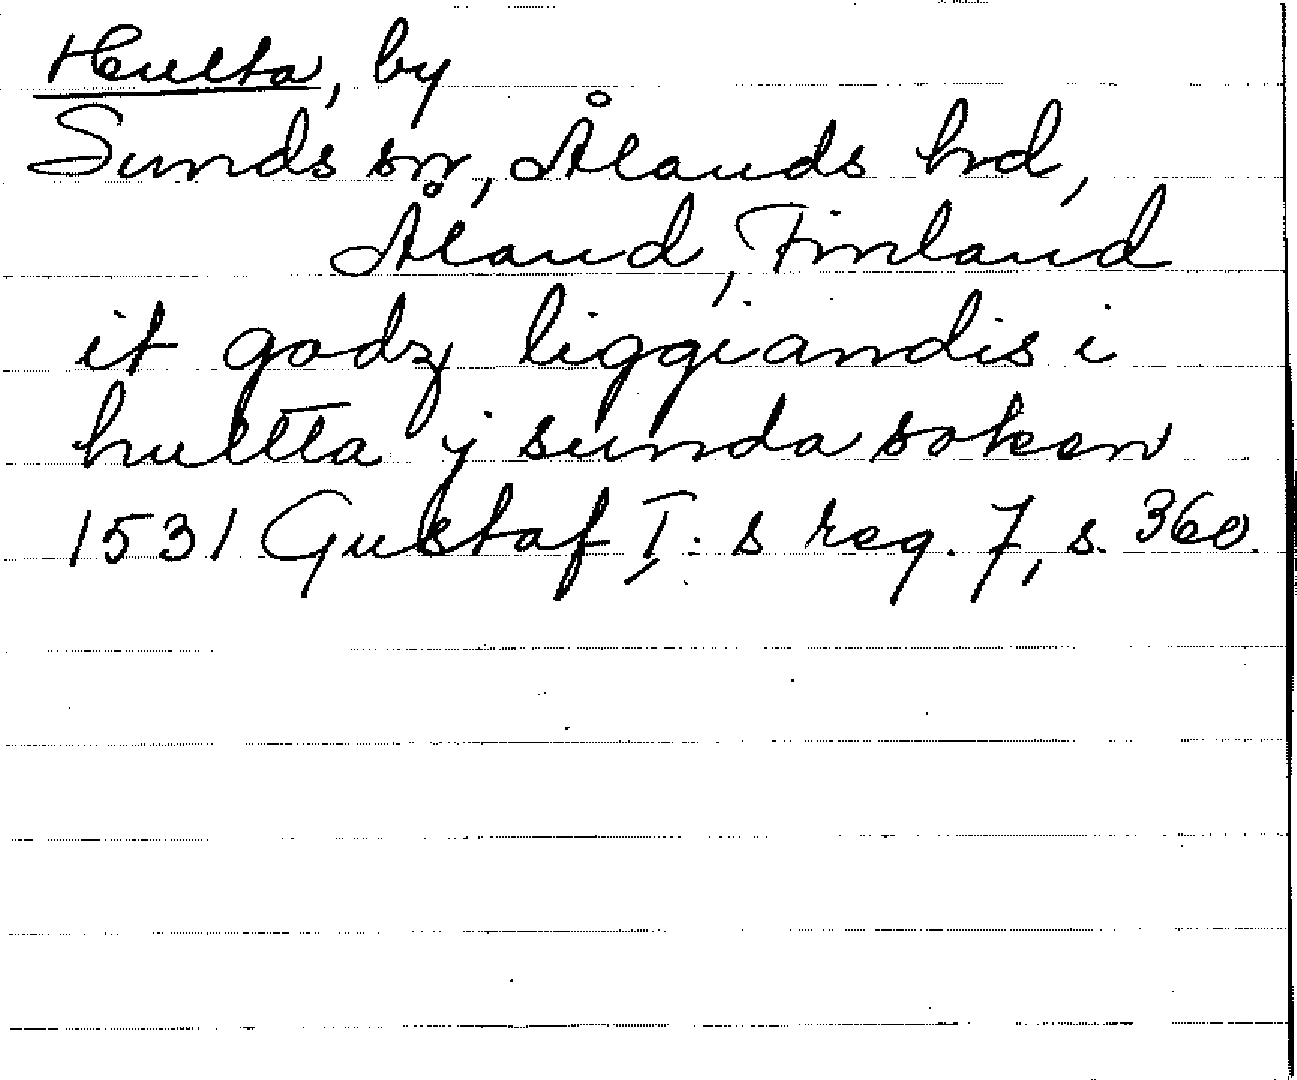 Hulta, by
Sunds sn, Ålands hd,
Åland, Finland
it godz liggiandis i
hultta j sunda soken
1531 Gustaf I:s reg. 7, s. 360.